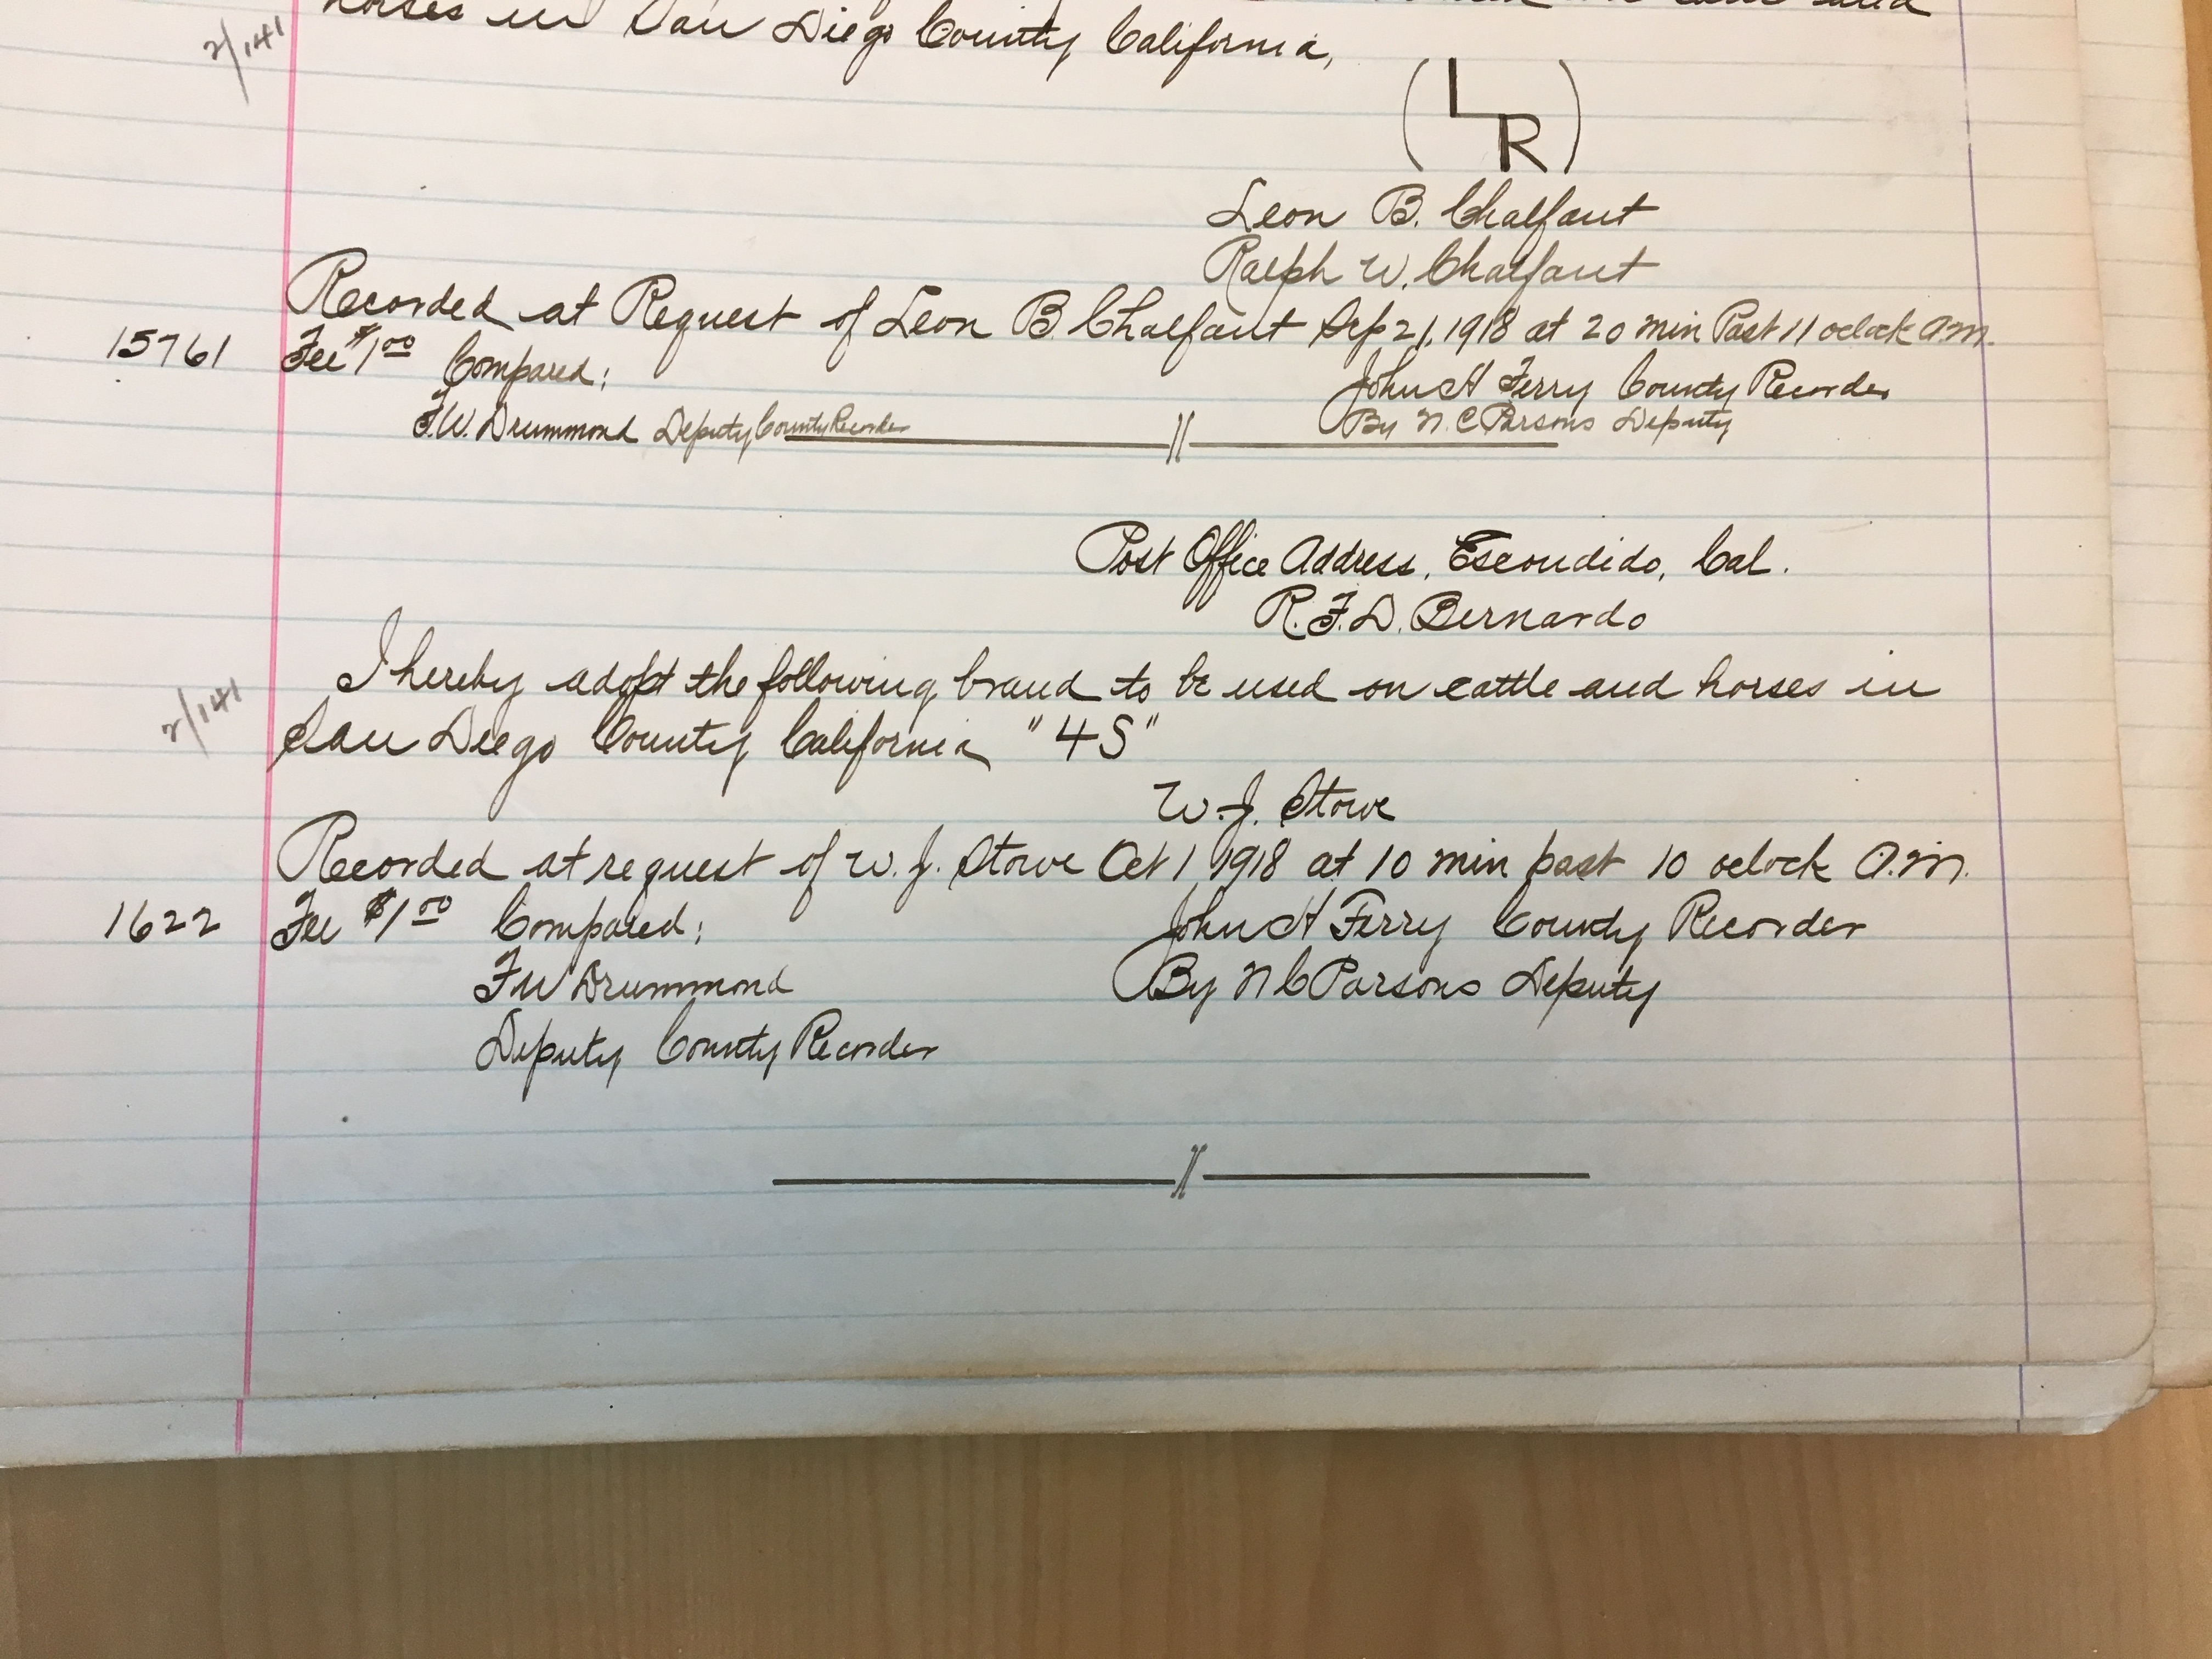 horses in San Diego County California,
2/141
L
R
Leon B. Chalfant
Ralph W. Chalfant
Recorded at Request of Leon B. Chalfant Sep 21, 1918 at 20 min Past 11 oclock A.M.
15761 Fee $1.00 Compared: John H Ferry County Recorder
F.W. Drummond Deputy County Recorder By N.C Parsons Deputy
Post Office Address, Escondido, Cal.
R.F.D. Bernardo
I hereby adopt the following brand to be used on cattle and horses in
2/141
San Diego County California "4S"
W.J. Stowe
Recorded at request of W.J. Stowe Oct 1, 1918 at 10 min past 10 oclock A.M.
1622 Fee $1.00 Compared: John H Ferry County Recorder
F W Drummond By N C Parsons Deputy
Deputy County Recorder